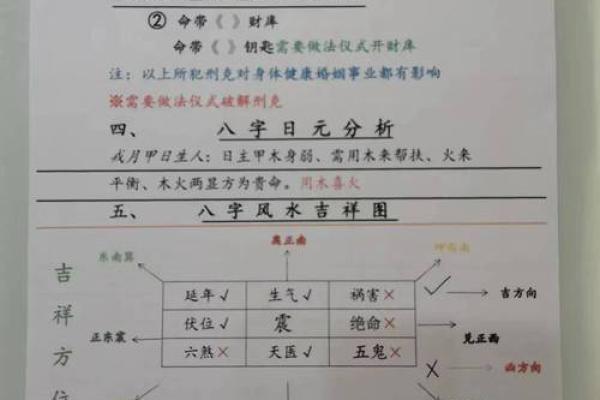 ② 命带《 》财库
命带《 》钥匙需要做法仪式开财库
注：以上所犯刑克对身体健康婚姻事业都有影响
※需要做法仪式破解刑克
四、 八字日元分析
戌月甲日生人：日主甲木身弱、需用木来帮扶、火来
平衡、木火两显方为贵命。用木喜火
五、 八字风水吉祥图
离正南
东南巽 坤西南
吉祥方位
延年√ 生气√ 祸害×
伏位√ 震 绝命×
六煞× 天医√ 五鬼×
正东震
兑正西
√ 吉方向
X 凶方向